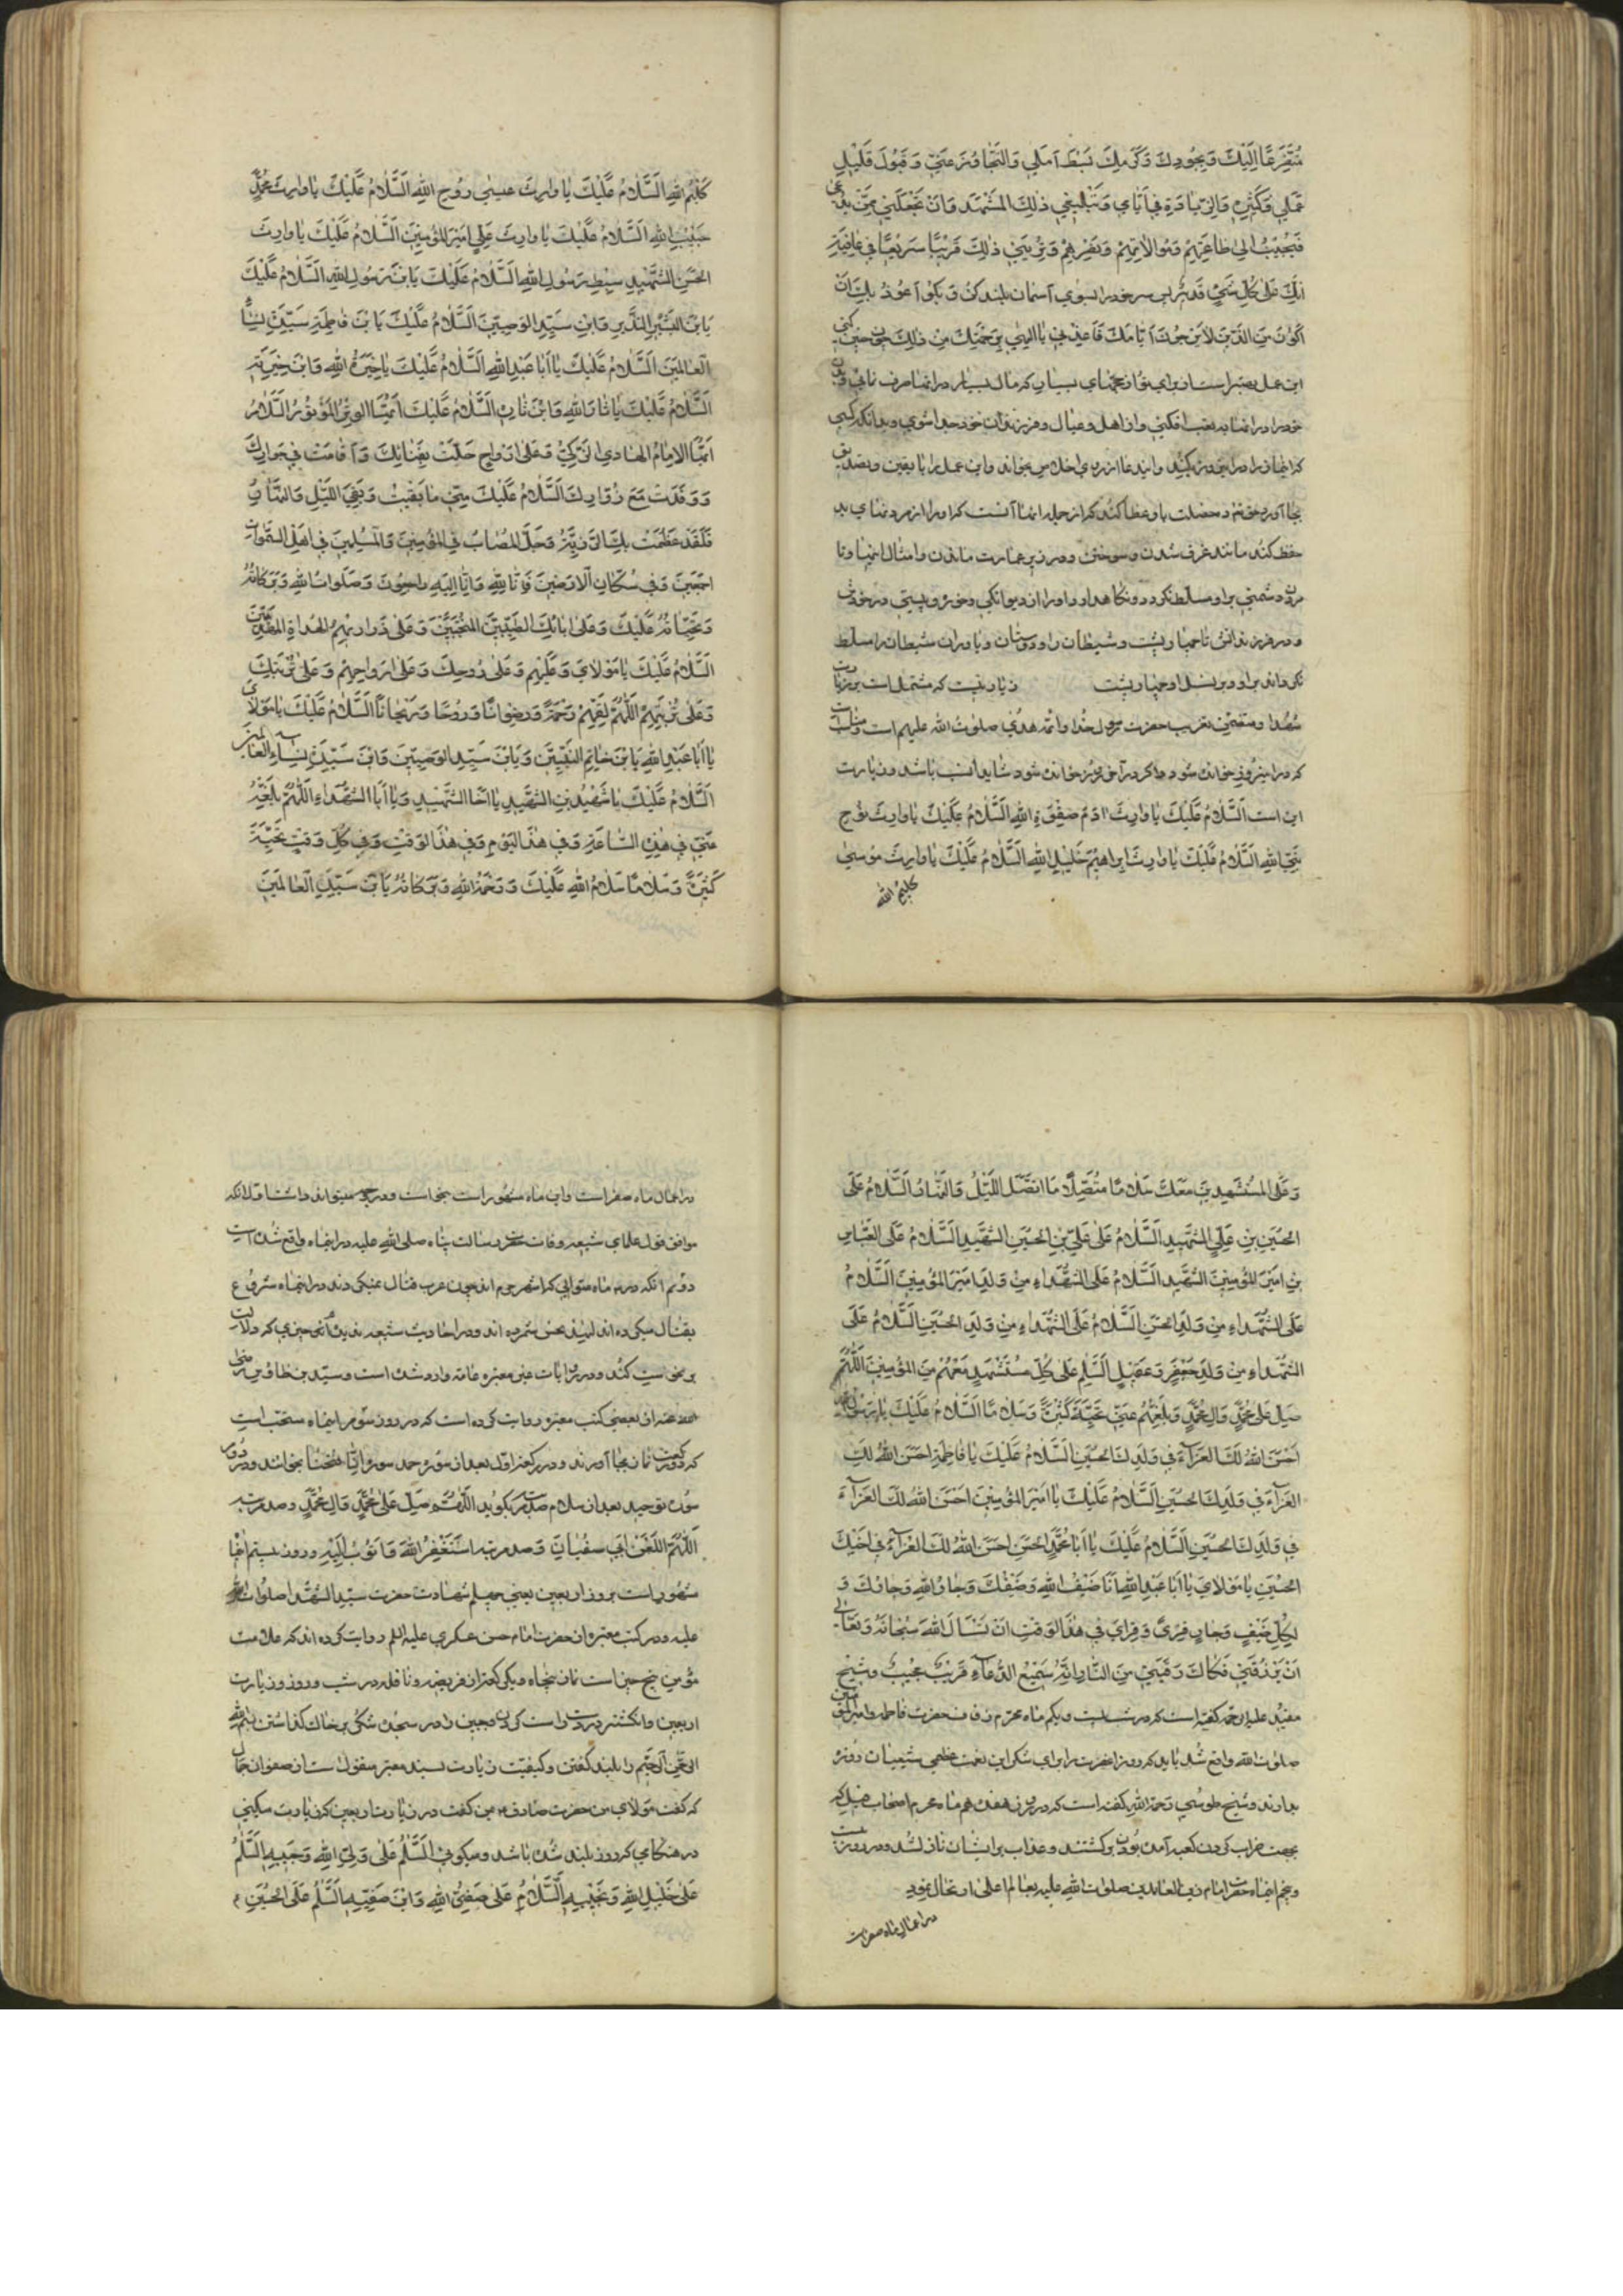 مُتَضَرِّعًا اِلَيْكَ وَبِجُودِكَ وَكَرَمِكَ بَسْطَ اَمَلي وَالتَّجاوُزَ عَنّي وَقَبُولَ قَليلِ
عَمَلي وَكَثيرِهِ وَالزِّيادَةَ في اَيّامي وَتَبْليغي ذٰلِكَ المَشْهَدَ وَاَنْ تَجْعَلَني مِمَّنْ يُدْعى
فَيُجيبُ اِلى طاعَتِهِمْ وَمُوالاتِهِمْ وَنَصْرِهِمْ وَتُرِيَني ذٰلِكَ قَريبًا سَريعًا في عافِيَةٍ
اِنَّكَ عَلى كُلِّ شَيْءٍ قَديرٌ پس سر خود را بسوی آسمان بلند کن و بگو اَعُوذُ بِكَ اَنْ
اَكُونَ مِنَ الَّذينَ لا يَرْجُونَ اَيّامَكَ فَاَعِذْني يا اِلهي بِرَحْمَتِكَ مِنْ ذٰلِكَ
این عمل بهتر است از برای تو از حجهای بسیار که مال بسیار در آنها صرف نمائی و بدن
خود را در آنها به تعب افکنی و از اهل و عیال و فرزندان خود جدا شوی و بدانکه کسی
که این نماز را در این روز بکند و این دعا از روی اخلاص بخواند و این عمل را با یقین و تصدیق
بجا آورد حق ده خصلت باو عطا کند که از جمله آنها آنست که او را از مرد نهای بد
حفظ کند مانند غرق شدن و سوختن و در زیر عمارت ماندن و امثال اینها و تا
مردن دشمنی بر او مسلط نگردد و نگاهدارد او را از دیوانگی و خوره و پیسی در خودش
و در فرزندانش تا چهار پشت و شیطان را و دوستان و یاوران شیطان را مسلط
نگرداند بر او و بر نسل او تا چهار پشت زیارتیست که مشتمل است بر زیارت
شهدا و متضمن تعزیت حضرت رسول خدا و ائمه هدی صلوات الله علیهم است و مناسب
که در این روز خوانده شود و اگر در آخر روز خوانده شود شاید انسب باشد و زیارت
این است اَلسَّلامُ عَلَيْكَ يا وارِثَ ادَمَ صِفْوَةِ اللهِ اَلسَّلامُ عَلَيْكَ يا وارِثَ نُوحٍ
نَبِيِّ اللهِ اَلسَّلامُ عَلَيْكَ يا وارِثَ اِبراهيمَ خَليلِ اللهِ اَلسَّلامُ عَلَيْكَ يا وارِثَ مُوسى
كليم الله
كَليمِ اللهِ اَلسَّلامُ عَلَيْكَ يا وارِثَ عيسى رُوحِ اللهِ اَلسَّلامُ عَلَيْكَ يا وارِثَ مُحَمَّدٍ
حَبيبِ اللهِ اَلسَّلامُ عَلَيْكَ يا وارِثَ عَلِيٍّ اَميرِ المُؤْمِنينَ اَلسَّلامُ عَلَيْكَ يا وارِثَ
الحَسَنِ الشَّهيدِ سِبْطِ رَسُولِ اللهِ اَلسَّلامُ عَلَيْكَ يَا بْنَ رَسُولِ اللهِ اَلسَّلامُ عَلَيْكَ
يَا بْنَ البَشيرِ النَّذيرِ وَابْنَ سَيِّدِ الوَصِيّينَ اَلسَّلامُ عَلَيْكَ يَا بْنَ فاطِمَةَ سَيِّدَةِ نِساءِ
العالَمينَ اَلسَّلامُ عَلَيْكَ يا اَبا عَبْدِ اللهِ اَلسَّلامُ عَلَيْكَ يا خِيَرَةَ اللهِ وَابْنَ خِيَرَتِهِ
اَلسَّلامُ عَلَيْكَ يا ثارَ اللهِ وَابْنَ ثارِهِ اَلسَّلامُ عَلَيْكَ اَيُّهَا الوِتْرُ المَوْتُورُ اَلسَّلامُ
اَيُّهَا الاِمامُ الهادي الزَّكِيُّ وَعَلى اَرْواحٍ حَلَّتْ بِفِنائِكَ وَاَقامَتْ في جِوارِكَ
وَوَفَدَتْ مَعَ زُوّارِكَ اَلسَّلامُ عَلَيْكَ مِنّي ما بَقيتُ وَبَقِيَ اللَّيْلُ وَالنَّهارُ
فَلَقَدْ عَظُمَتْ بِكَ الرَّزِيَّةُ وَجَلَّ المُصابُ فِي المُؤْمِنينَ وَالمُسْلِمينَ في اَهْلِ السَّمٰواتِ
اَجْمَعينَ وَفي سُكّانِ الاَرَضينَ فَاِنّا لِلّهِ وَاِنّا اِلَيْهِ راجِعُونَ وَصَلَواتُ اللهِ وَبَرَكاتُهُ
وَتَحِيّاتُهُ عَلَيْكَ وَعَلى ابائِكَ الطَّيِّبينَ المُنْتَجَبينَ وَعَلى ذَراريهِمُ الهُداةِ المَهْدِيّينَ
اَلسَّلامُ عَلَيْكَ يا مَوْلايَ وَعَلَيْهِمْ وَعَلى رُوحِكَ وَعَلى اَرْواحِهِمْ وَعَلى تُرْبَتِكَ
وَعَلى تُرْبَتِهِمْ اَللّهُمَّ لَقِّهِمْ رَحْمَةً وَرِضْوانًا وَرَوْحًا وَرَيْحانًا اَلسَّلامُ عَلَيْكَ يا مَوْلايَ
يا اَبا عَبْدِ اللهِ يَا بْنَ خاتَمِ النَّبِيّينَ وَيَا بْنَ سَيِّدِ الوَصِيّينَ وَابْنَ سَيِّدَةِ نِساءِ العالَمينَ
اَلسَّلامُ عَلَيْكَ يا شَهيدُ بْنَ الشَّهيدِ يا اَخَا الشَّهيدِ وَيا اَبَا الشُّهَداءِ اَللّهُمَّ بَلِّغْهُ
عَنّي في هٰذِهِ السّاعَةِ وَفي هٰذَا اليَوْمِ وَفي هٰذَا الوَقْتِ وَفي كُلِّ وَقْتٍ تَحِيَّةً
كَثيرَةً وَسَلامًا سَلامُ اللهِ عَلَيْكَ وَرَحْمَةُ اللهِ وَبَرَكاتُهُ يَا بْنَ سَيِّدِ العالَمينَ
وَعَلَى المُسْتَشْهَدينَ مَعَكَ سَلامًا مُتَّصِلًا مَا اتَّصَلَ اللَّيْلُ وَالنَّهارُ اَلسَّلامُ عَلَى
الحُسَيْنِ بْنِ عَلِيٍّ الشَّهيدِ اَلسَّلامُ عَلى عَلِيِّ بْنِ الحُسَيْنِ الشَّهيدِ اَلسَّلامُ عَلَى العَبّاسِ
بْنِ اَميرِ المُؤْمِنينَ الشَّهيدِ اَلسَّلامُ عَلَى الشُّهَداءِ مِنْ وَلَدِ اَميرِ المُؤْمِنينَ اَلسَّلامُ
عَلَى الشُّهَداءِ مِنْ وَلَدِ الحَسَنِ اَلسَّلامُ عَلَى الشُّهَداءِ مِنْ وَلَدِ الحُسَيْنِ اَلسَّلامُ عَلَى
الشُّهَداءِ مِنْ وَلَدِ جَعْفَرٍ وَعَقيلٍ اَلسَّلامُ عَلى كُلِّ مُسْتَشْهَدٍ مَعَهُمْ مِنَ المُؤْمِنينَ اَللّهُمَّ
صَلِّ عَلى مُحَمَّدٍ وَالِ مُحَمَّدٍ وَبَلِّغْهُمْ عَنّي تَحِيَّةً كَثيرَةً وَسَلامًا اَلسَّلامُ عَلَيْكَ يا رَسُولَ اللهِ
اَحْسَنَ اللهُ لَكَ العَزاءَ في وَلَدِكَ الحُسَيْنِ اَلسَّلامُ عَلَيْكِ يا فاطِمَةُ اَحْسَنَ اللهُ لَكِ
العَزاءَ في وَلَدِكِ الحُسَيْنِ اَلسَّلامُ عَلَيْكَ يا اَميرَ المُؤْمِنينَ اَحْسَنَ اللهُ لَكَ العَزاءَ
في وَلَدِكَ الحُسَيْنِ اَلسَّلامُ عَلَيْكَ يا اَبا مُحَمَّدٍ الحَسَنِ اَحْسَنَ اللهُ لَكَ العَزاءَ في اَخيكَ
الحُسَيْنِ يا مَوْلايَ يا اَبا عَبْدِ اللهِ اَنَا ضَيْفُ اللهِ وَضَيْفُكَ وَجارُ اللهِ وَجارُكَ وَ
لِكُلِّ ضَيْفٍ وَجارٍ قِرًى وَقِرايَ في هٰذَا الوَقْتِ اَنْ تَسْاَلَ اللهَ سُبْحانَهُ وَتَعالى
اَنْ يَرْزُقَني فَكاكَ رَقَبَتي مِنَ النّارِ اِنَّهُ سَميعُ الدُّعاءِ قَريبٌ مُجيبٌ وشیخ
مفید علیه الرحمه گفته است که در شب بیست و یکم ماه محرم زفاف حضرت فاطمه و امیرالمؤمنین
صلوات الله واقع شد باید که روز آنحضرت را برای شکر این نعمت عظمی شیعیان روزه
بدارند و شیخ طوسی رحمة الله گفته است که در روز هفدهم ماه محرم اصحاب فیل که
بجهت خراب کردن کعبه آمده بودند برگشتند و عذاب بر ایشان نازل شد و در روز بیست
و پنجم اینماه حضرت امام زین العابدین صلوات الله علیه بعالم اعلی ارتحال نمود
در اعمال ماه صفر است
در اعمال ماه صفر است و این ماه مشهور است بنحوست و دو وجه میتواند داشت اول آنکه
موافق قول علمای شیعه وفات حضرت رسالت پناه صلی الله علیه در اینماه واقع شده است
دوّم آنکه در سه ماه متوالی که اشهر حرم اند چون عرب قتال نمیکردند در اینماه شروع
بقتال میکرده اند لهذا نحس شمرده اند و در احادیث شیعه ندیده ام چیزی که دلالت
بر نحوست کند و در روایات غیر معتبره عامه وارد شده است و سیّد بن طاوس رضی
الله عنه از بعضی کتب معتبر روایت کرده است که در روز سوّم اینماه مستحب است
که دو رکعت نماز بجا آورند و در رکعت اوّل بعد از سوره حمد سوره انّا فتحنا بخوانند و در دوّم
سوره توحید بعد از سلام صد مرتبه بگوید اَللّهُمَّ صَلِّ عَلى مُحَمَّدٍ وَالِ مُحَمَّدٍ و صد مرتبه
اَللّهُمَّ العَنْ الَ اَبي سُفْيانَ و صد مرتبه اَسْتَغْفِرُ اللهَ وَاَتُوبُ اِلَيْهِ و روز بیستم اینماه
مشهور است بروز اربعین یعنی چهلم شهادت حضرت سیّد الشهدا صلوات الله
علیه و در کتب معتبره از حضرت امام حسن عسکری علیه السلم روایت کرده اند که علامت
مؤمن پنج چیز است نماز پنجاه و یک رکعت از فریضه و نافله در شب و روز و زیارت
اربعین و انگشتر در دست راست کردن و جبین را در سجده شکر بر خاک گذاشتن و بسم الله
الرحمن الرحیم را بلند گفتن و کیفیت زیارت بسند معتبر منقول است از صفوان جمال
که گفت مولای من حضرت صادق بمن گفت در زیارت اربعین که زیارت میکنی
در هنگامی که روز بلند شده باشد و میگوئی اَلسَّلامُ عَلى وَلِيِّ اللهِ وَحَبيبِهِ اَلسَّلامُ
عَلى خَليلِ اللهِ وَنَجيبِهِ اَلسَّلامُ عَلى صَفِيِّ اللهِ وَابْنِ صَفِيِّهِ اَلسَّلامُ عَلَى الحُسَيْنِ